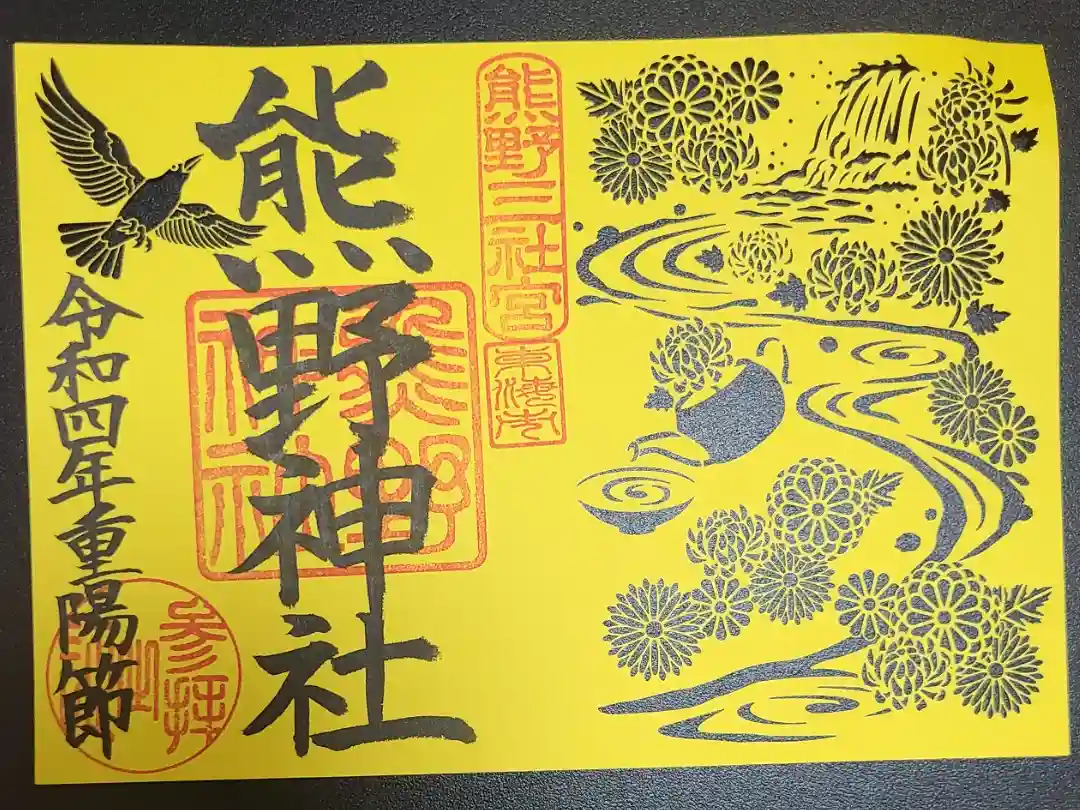 熊野三社宮
東海市
熊野神社
熊野
神社
令和四年重陽節
参拝